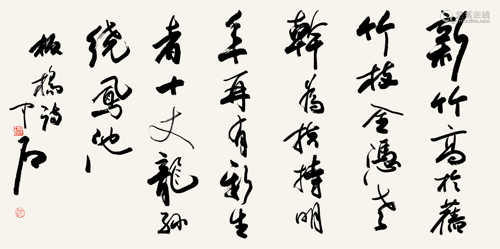 新竹高於舊
竹枝全憑老
幹為扶持明
年再有新生
者十丈龍孫
繞鳳池
板橋詩